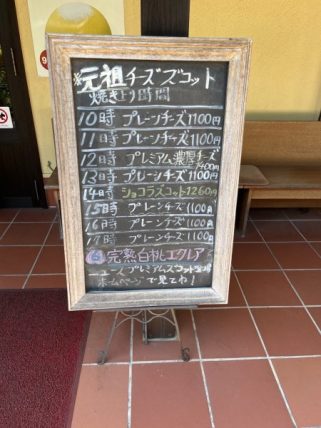 ※元祖チーズズコット
焼き上り時間
10時 プレーンチーズ 1100円
11時 プレーンチーズ 1100円
12時 プレミアム濃厚チーズ
1400円
13時 プレーンチーズ 1100円
14時 ショコラズコット 1260円
15時 プレーンチーズ 1100円
16時 プレーンチーズ 1100円
17時 プレーンチーズ 1100円
完熟白桃エクレア
ニュース プレミアムズコット
ホームページで見てね!